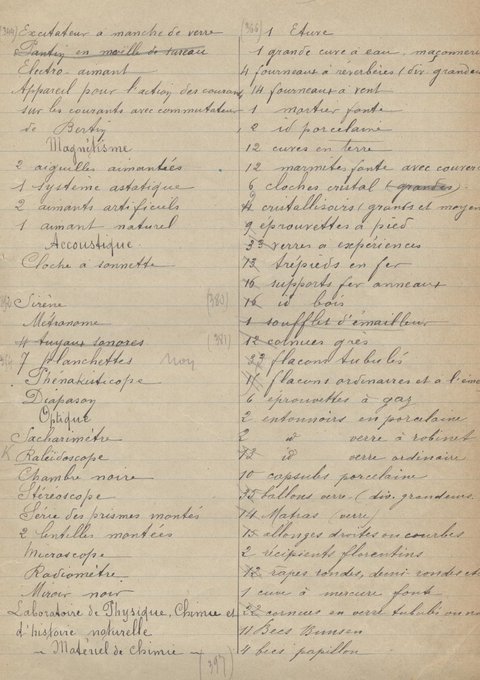 (344) Excitateur à manche de verre
Pantin en moelle de sureau
Electro-aimant
Appareil pour l'action des courants
sur les courants avec commutateur
de Bertin
Magnétisme
2 aiguilles aimantées
1 système astatique
2 aimants artificiels
1 aimant naturel
Accoustique
Cloche à sonnette
Sirène (380)
Métronome
4 tuyaux sonores (381)
7 planchettes
Phénakisticope
Diapason
Optique
Sacharimètre
Kaléidoscope
Chambre noire
Stéréoscope
Série des prismes montés
2 lentilles montées
Microscope
Radiomètre
Miroir noir
Laboratoire de Physique, Chimie et
d'histoire naturelle
- Matériel de Chimie -
(397)
(366) 1 Etuve
1 grande cuve à eau, maçonnerie
4 fourneaux à réverbères (div. grandeurs
14 fourneaux à vent
1 mortier fonte
2 id porcelaine
12 cuves en terre
12 marmites fonte avec couver
6 cloches cristal (grandes)
4 cristallisoirs (grants et moyen
9 eprouvettes à pied
33 verres à expériences
13 trépieds en fer
16 supports fer anneaux
16 id bois
1 soufflet d'émailleur
12 cornues grès
23 flacons tubulés
flacons ordinaires et à l'éme
6 eprouvettes à gaz
2 entonnoirs en porcelaine
2 id verre à robinet
13 id verre ordinaire
10 capsules porcelaine
35 ballons verre (div. grandeurs.
14 Matras (verre)
13 allonges droites ou courbes
2 récipients florentins
12 rapes rondes, demi rondes et
1 cuve à mercure fonte
22 cornues en verre tubulés ou no
11 Becs Bunsen
4 becs papillon